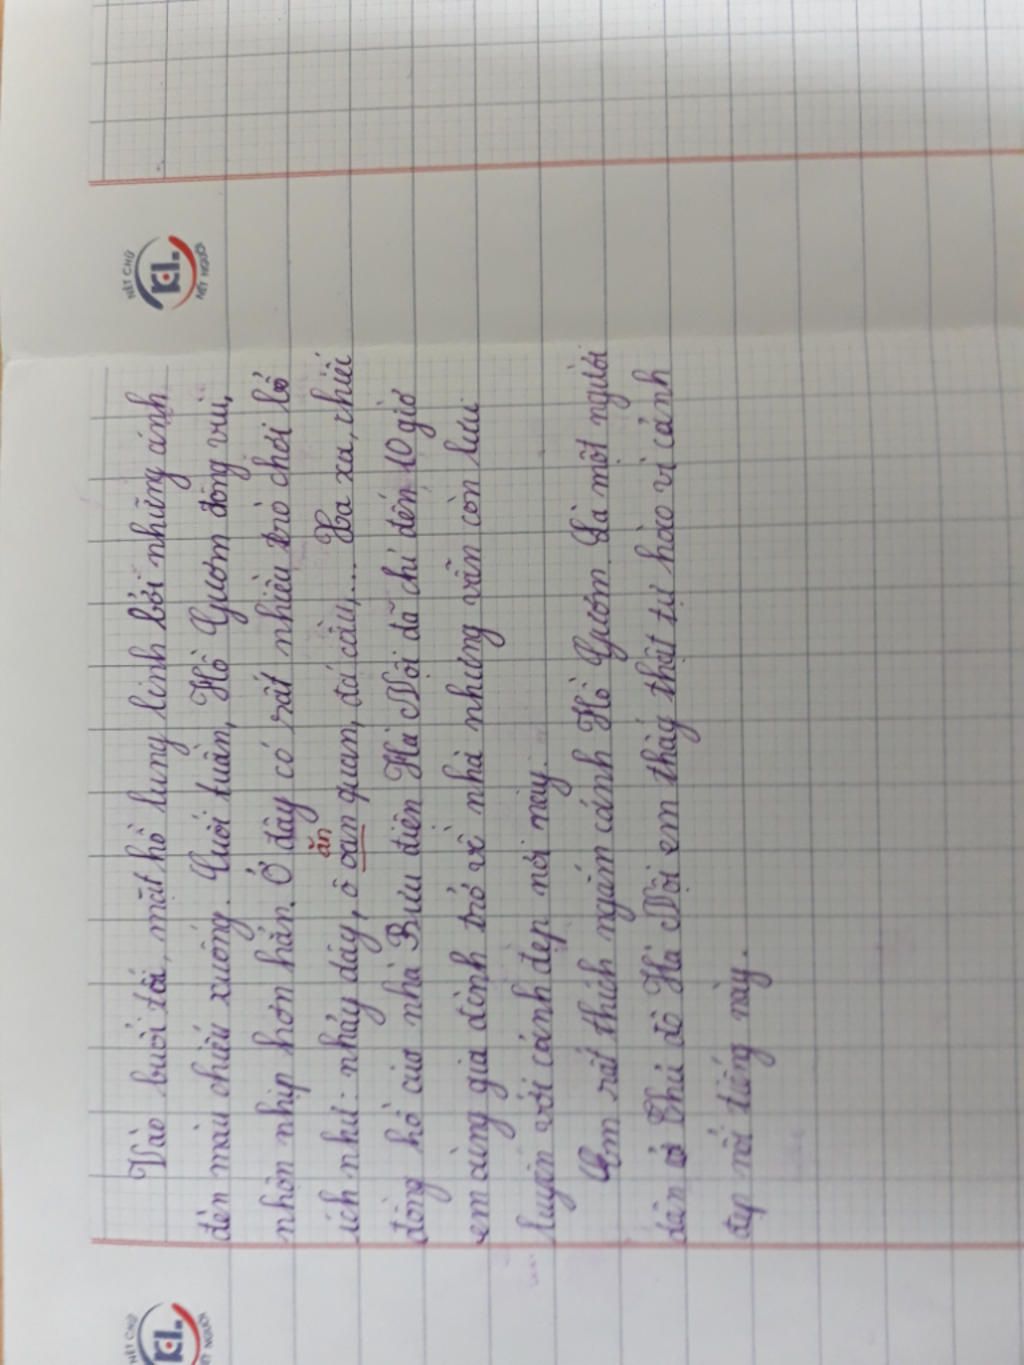 NÉT CHỮ
KCL
NẾT NGƯỜI
Vào buổi tối, mặt hồ lung linh bởi những ánh
đèn màu chiếu xuống. Cuối tuần, Hồ Gươm đông vui,
nhộn nhịp hơn hẳn. Ở đây có rất nhiều trò chơi bổ
ích như: nhảy dây, ô oan quan, đá cầu,... Xa xa, chiếc
ăn
đồng hồ của nhà Bưu điện Hà Nội đã chỉ đến 10 giờ
em cùng gia đình trở về nhà nhưng vẫn còn lưu
luyện với cảnh đẹp nơi này.
Em rất thích ngắm cảnh Hồ Gươm. Là một người
dân ở Thủ đô Hà Nội em thấy thật tự hào vì cảnh
đẹp nổi tiếng này.
NÉT CHỮ
NẾT NGƯỜI